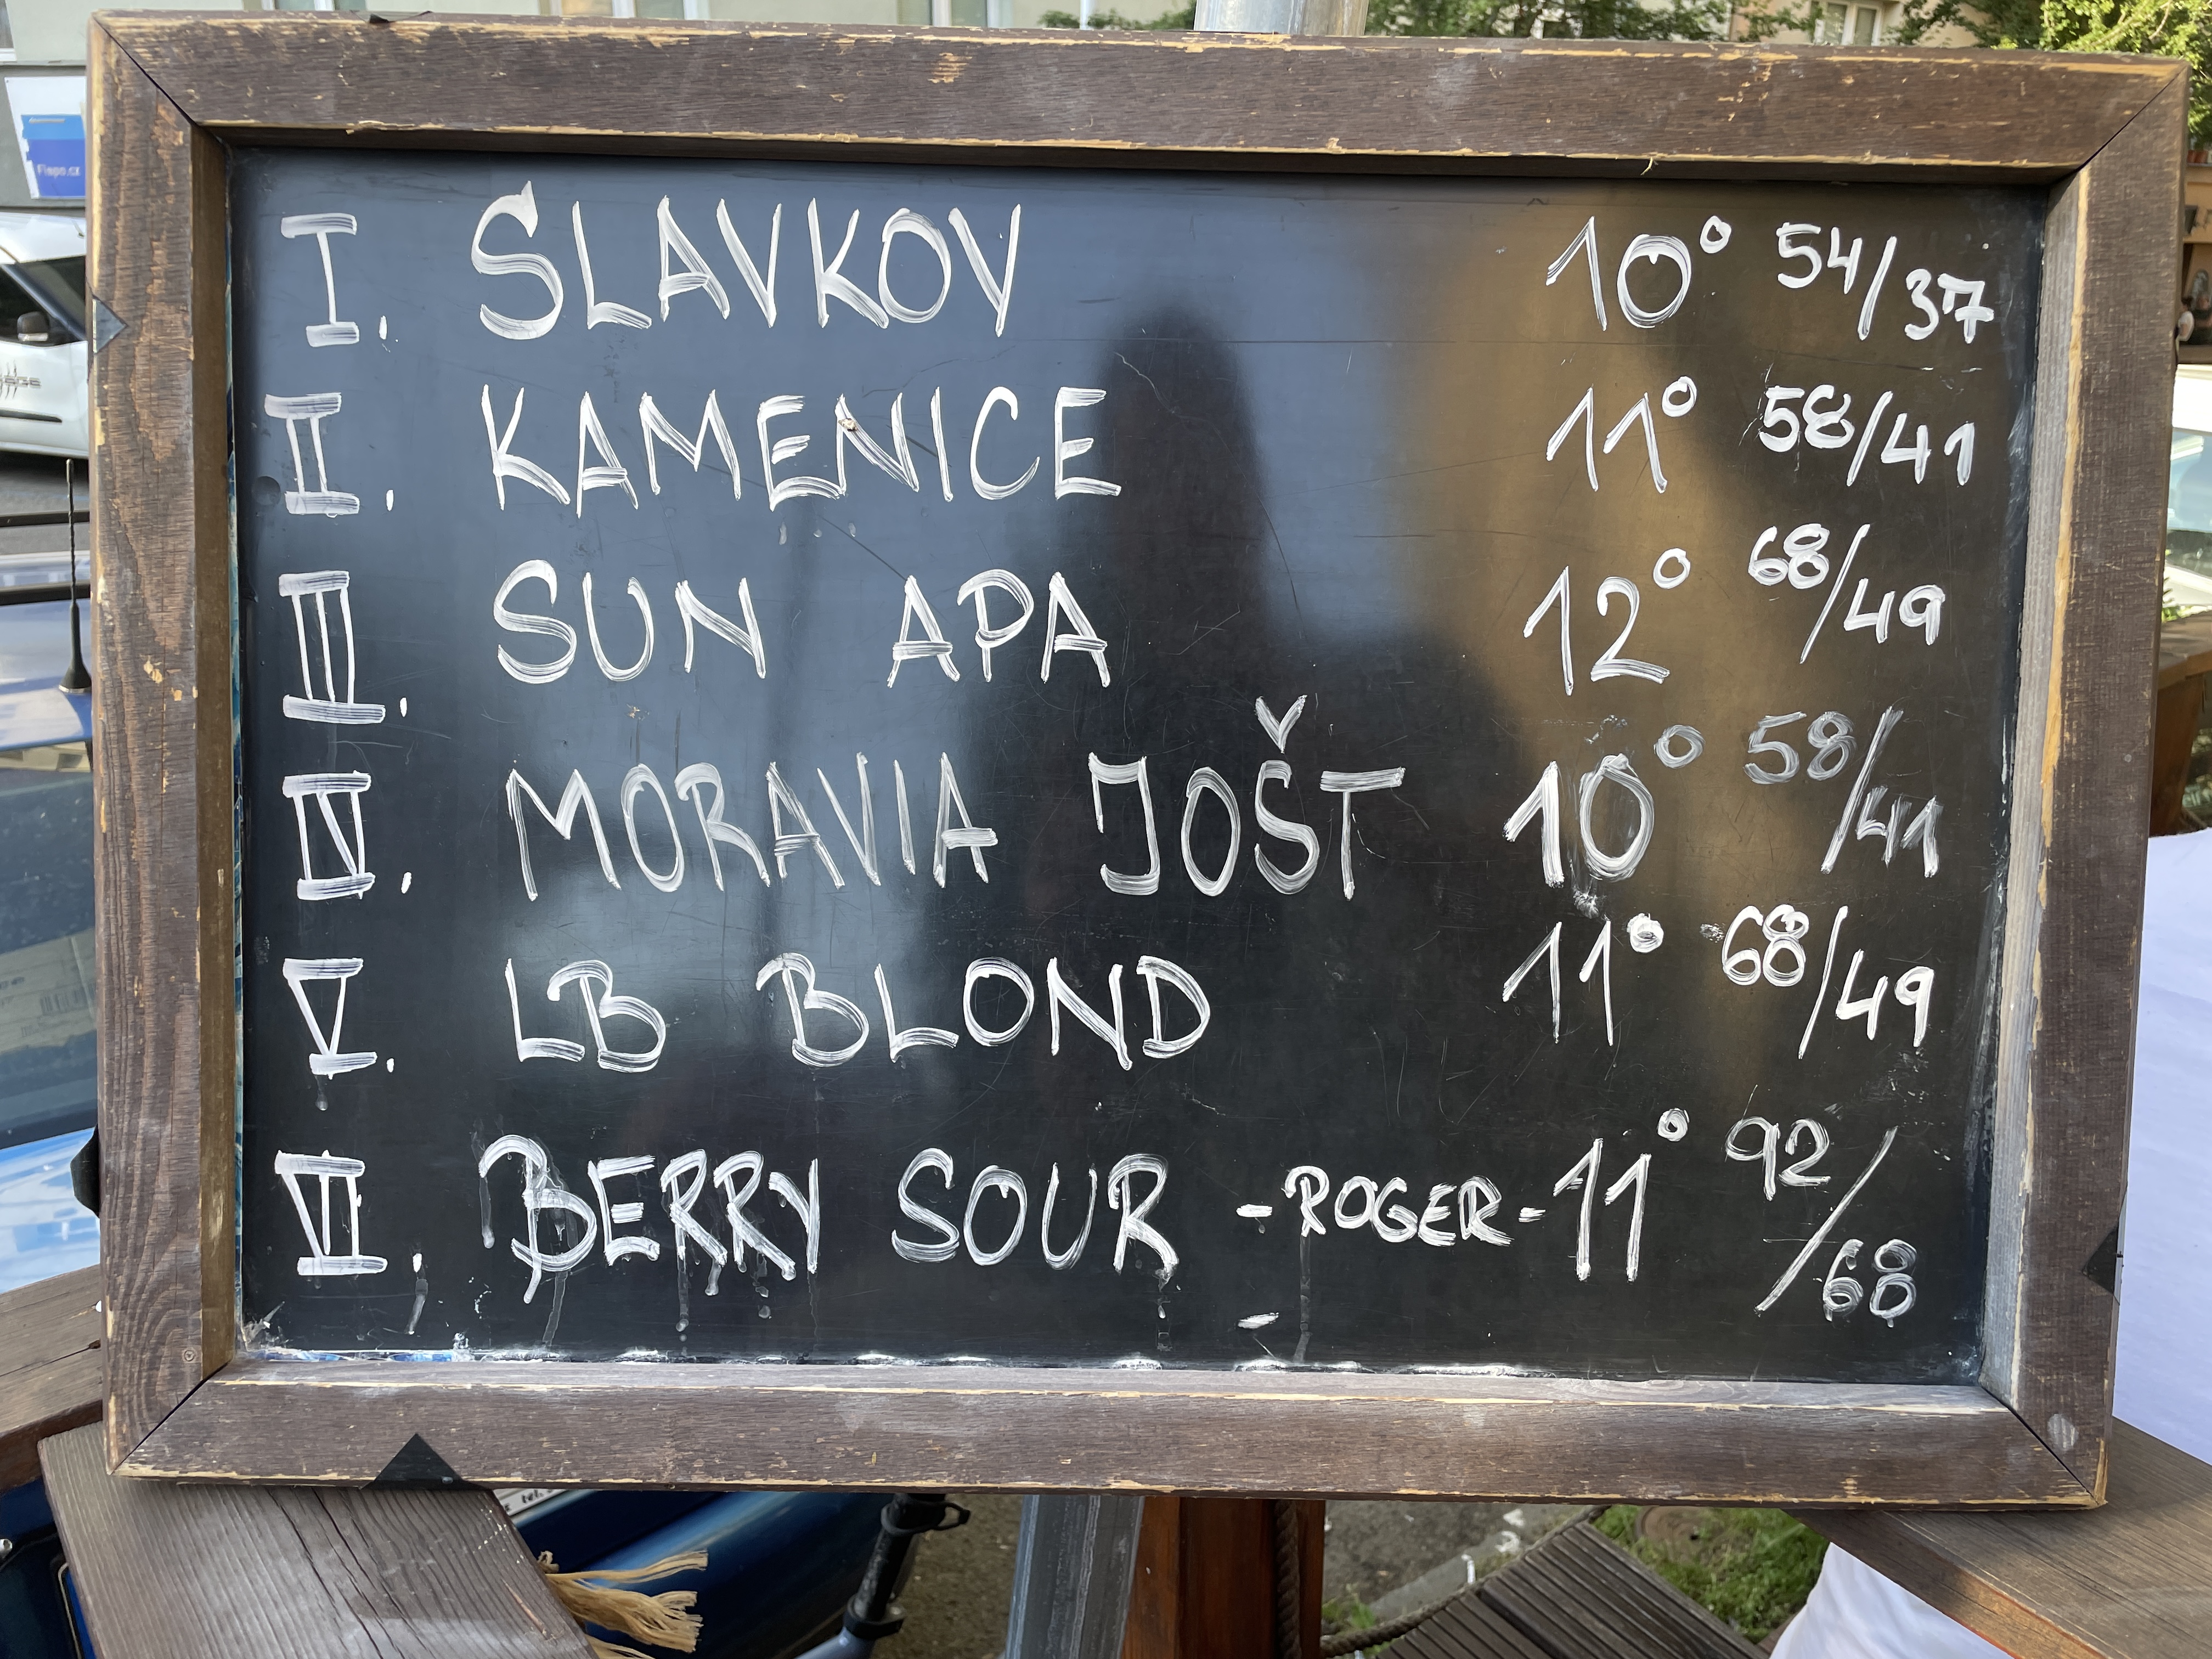 Flapo.cz
I. SLAVKOV 10° 54/37
II. KAMENICE 11° 58/41
III. SUN APA 12° 68/49
IV. MORAVIA JOŠT 10° 58/41
V. LB BLOND 11° 68/49
VI. BERRY SOUR -ROGER- 11° 92/68
tel.